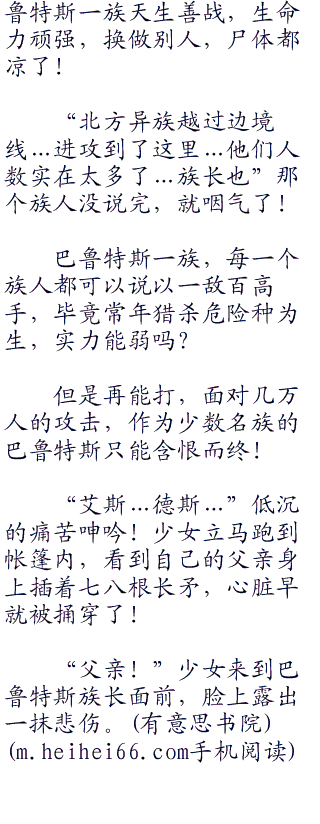 鲁特斯一族天生善战，生命
力顽强，换做别人，尸体都
凉了！
“北方异族越过边境
线…进攻到了这里…他们人
数实在太多了…族长也”那
个族人没说完，就咽气了！
巴鲁特斯一族，每一个
族人都可以说以一敌百高
手，毕竟常年猎杀危险种为
生，实力能弱吗？
但是再能打，面对几万
人的攻击，作为少数名族的
巴鲁特斯只能含恨而终！
“艾斯…德斯…”低沉
的痛苦呻吟！少女立马跑到
帐篷内，看到自己的父亲身
上插着七八根长矛，心脏早
就被捅穿了！
“父亲！”少女来到巴
鲁特斯族长面前，脸上露出
一抹悲伤。(有意思书院)
(m.heihei66.com手机阅读)